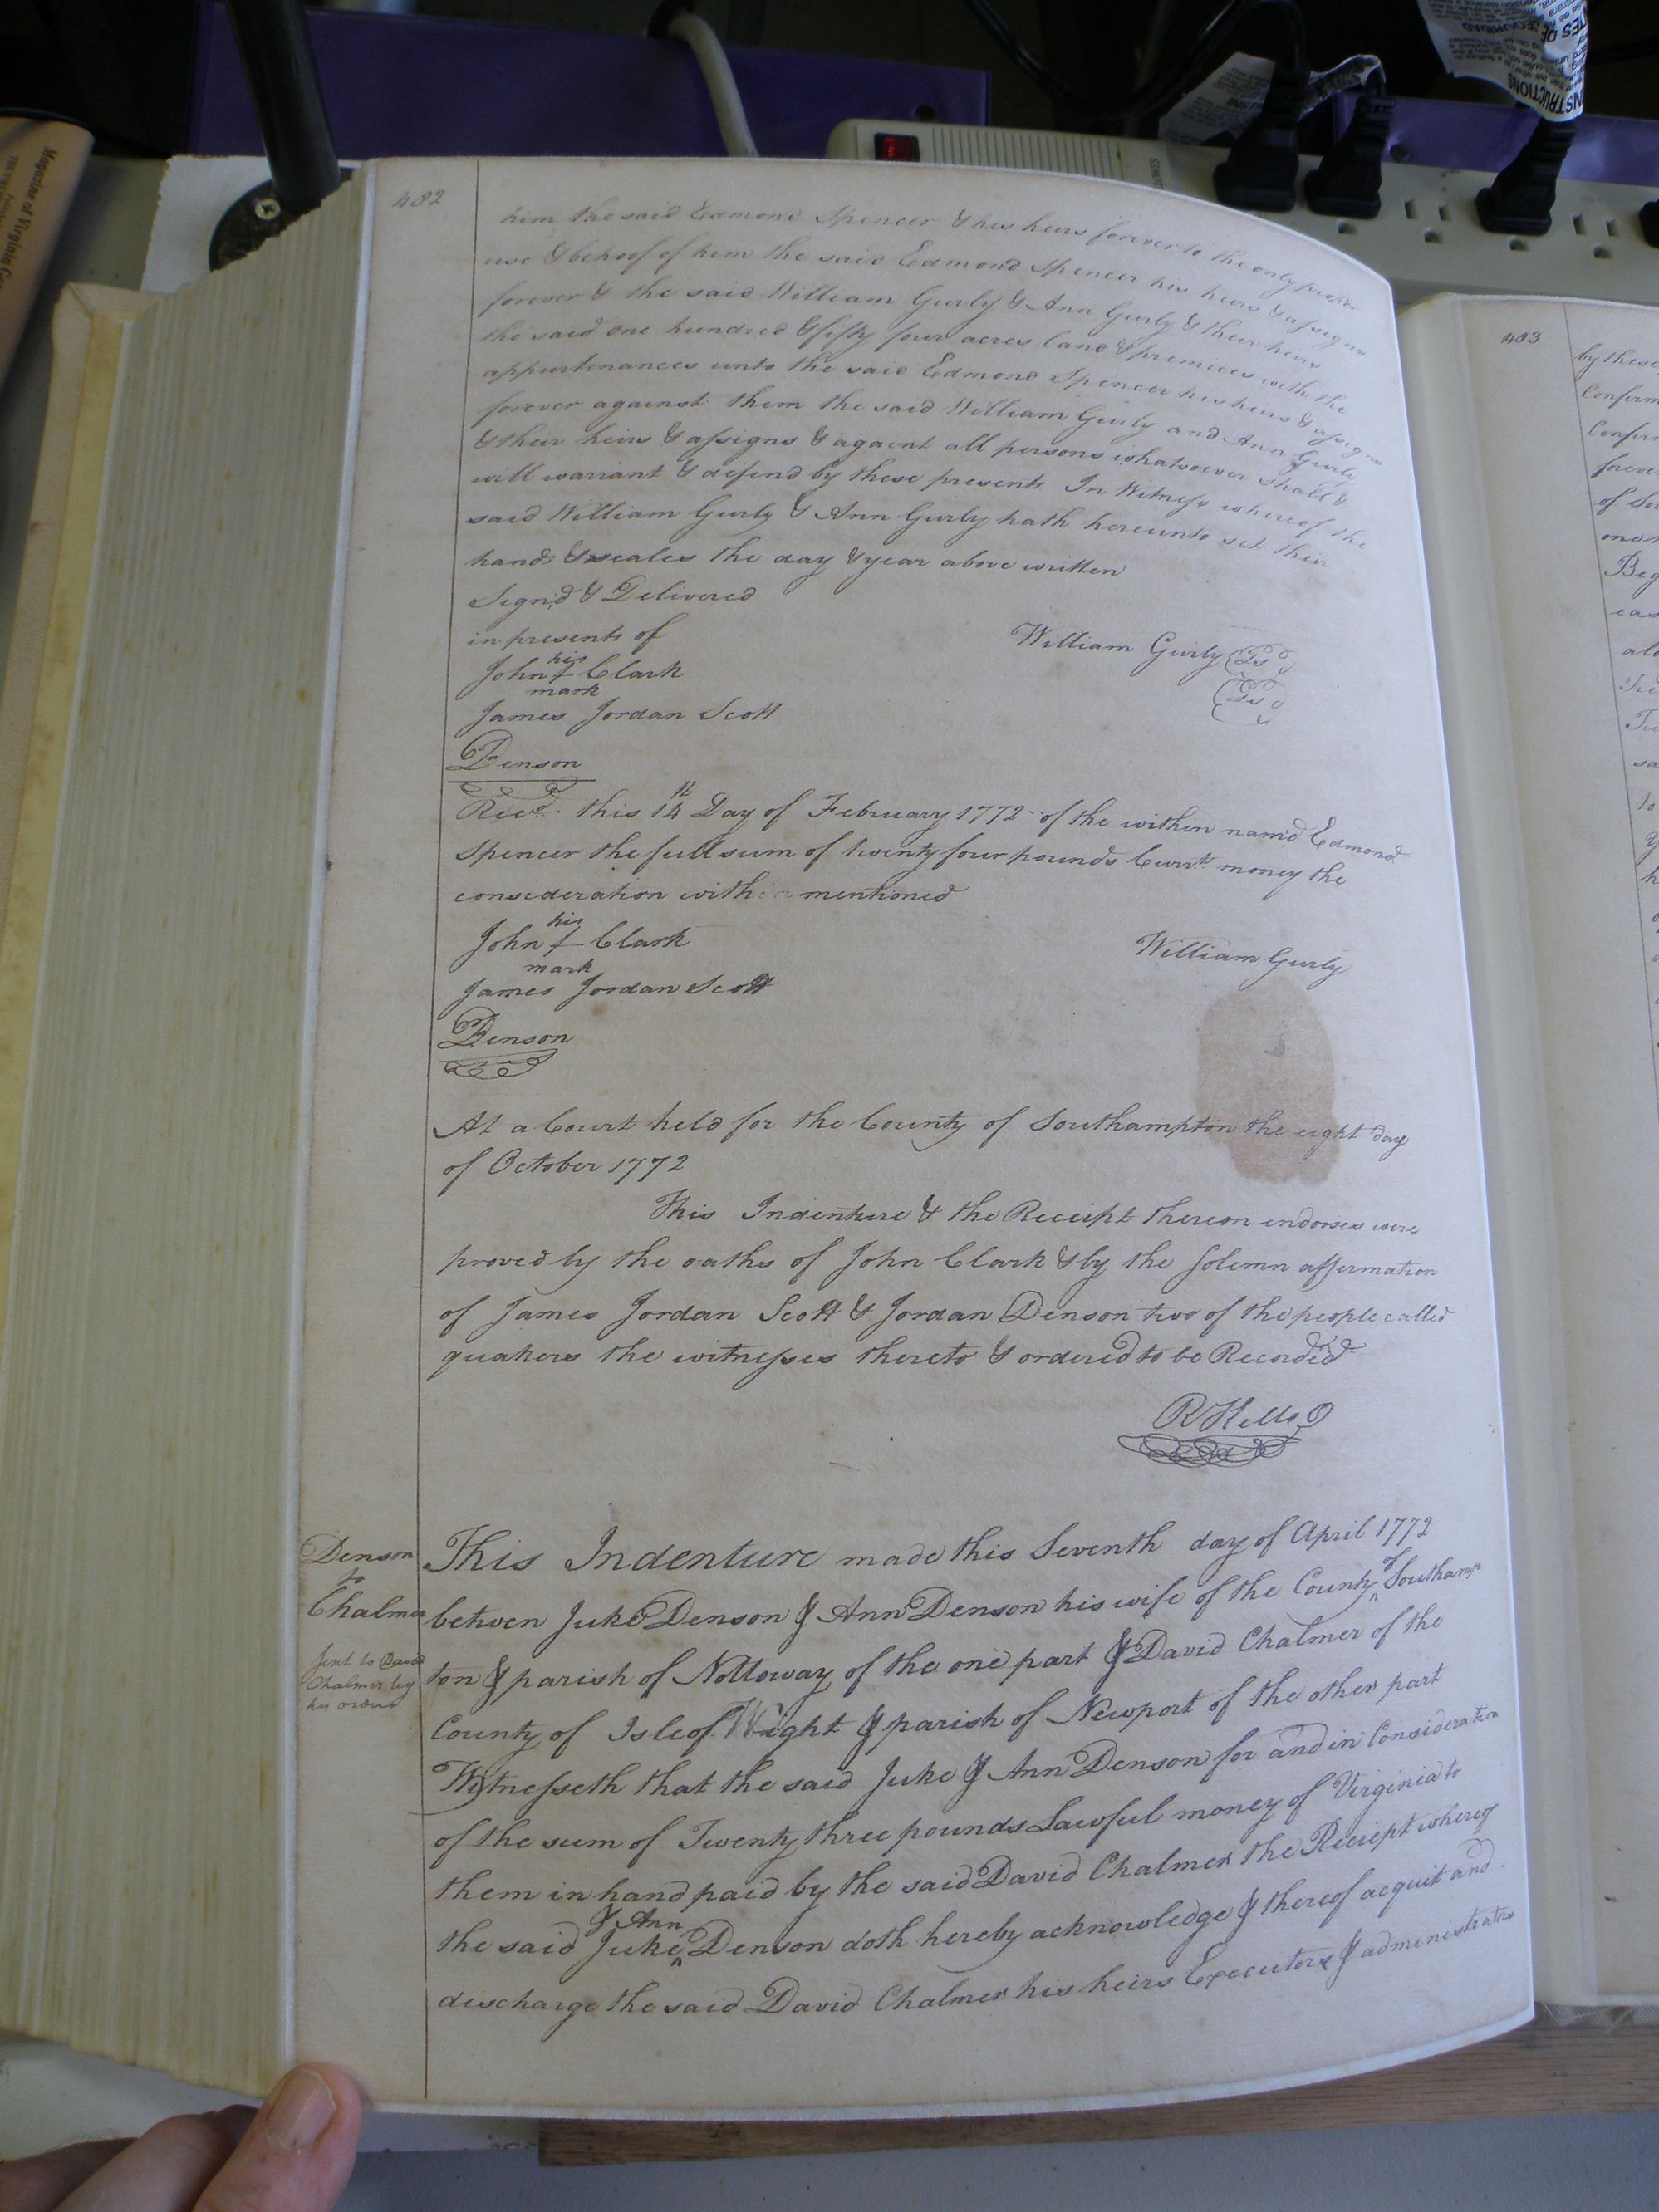 482
him the said Edmond Spencer & his heirs forever to the only proper
use & behoof of him the said Edmond Spencer his heirs & assigns
forever & the said William Gurly & Ann Gurly & their heirs
the said one hundred & fifty four acres land & premices with the
appurtenances unto the said Edmond Spencer his heirs & assigns
forever against them the said William Gurly and Ann Gurly
& their heirs & assigns & againt all persons whatsoever shall &
will warrant & defend by these presents In Witness whereof the
said William Gurly & Ann Gurly hath hereunto set their
hands & seales the day & year above written
Signd & Delivered
in presents of
William Gurly Ls
Ls
his
John Clark
mark
James Jordan Scott
Denson
Recd. this 14th Day of February 1772 of the within namd Edmond
Spencer the full sum of twenty four pounds Currt. money the
consideration within mentioned
his
John Clark
mark
William Gurly
James Jordan Scott
Denson
At a Court held for the County of Southampton the eight day
of October 1772
This Indenture & the Receipt thereon endorses were
proved by the oaths of John Clark & by the solemn affermation
of James Jordan Scott & Jordan Denson two of the people called
quakers the witnesses thereto & ordered to be Recorded
R Kello
Denson
to
Chalmer
Sent to David
Chalmer by
his order
This Indenture made this Seventh day of April 1772
betwen Juke Denson & Ann Denson his wife of the County of Southamp
ton & parish of Nottoway of the one part & David Chalmer of the
County of Isle of Wight & parish of Newport of the other part
Witnesseth that the said Juke & Ann Denson for and in Consideration
of the sum of Twenty three pounds Lawful money of Virginia to
them in hand paid by the said David Chalmer the Reciept whereof
the said Juke & Ann Denson doth hereby acknowledge & thereof acquit and
discharge the said David Chalmer his heirs Executors & administrators
483
by these
Confirm
forever
of
Beg
Magazine of Virginia
INSTRUCTIONS